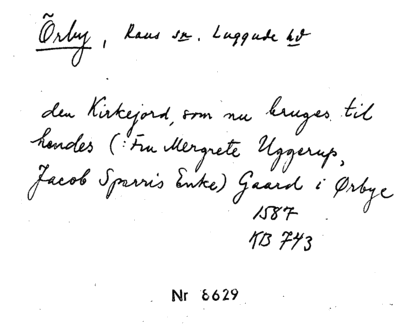 Örby, Raus sn. Luggude hd
den Kirkejord, som nu bruges til
hendes (: Fru Mergrete Uggerup,
Jacob Sparris Enke) Gaard i Ørbye
1587
KB 743
Nr 8629